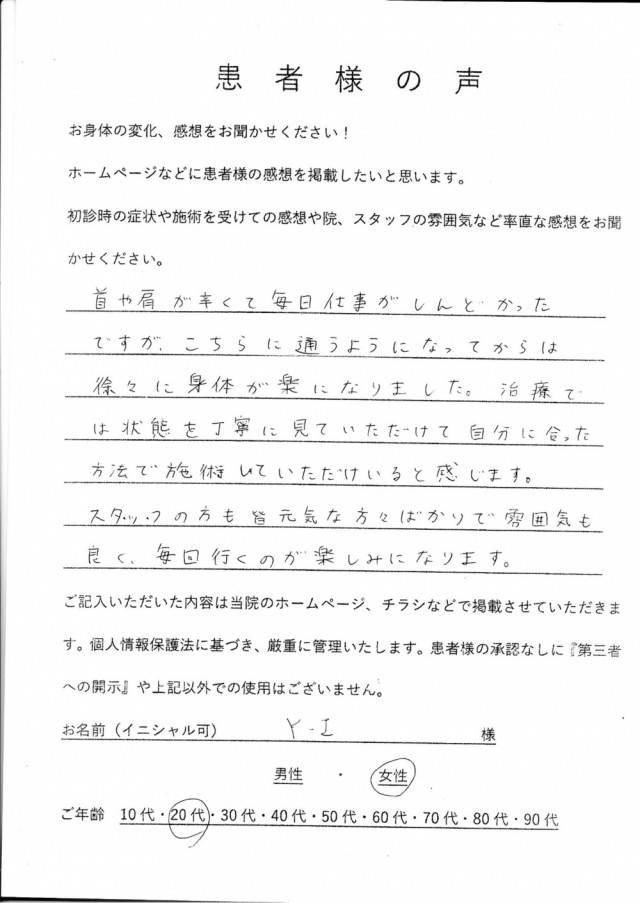 患者様の声
お身体の変化、感想をお聞かせください！
ホームページなどに患者様の感想を掲載したいと思います。
初診時の症状や施術を受けての感想や院、スタッフの雰囲気など率直な感想をお聞
かせください。
首や肩が辛くて毎日仕事がしんどかった
ですが、こちらに通うようになってからは
徐々に身体が楽になりました。治療で
は状態を丁寧に見ていただけて自分に合った
方法で施術していただけいると感じます。
スタッフの方も皆元気な方々ばかりで雰囲気も
良く、毎回行くのが楽しみになります。
ご記入いただいた内容は当院のホームページ、チラシなどで掲載させていただきま
す。個人情報保護法に基づき、厳重に管理いたします。患者様の承認なしに『第三者
への開示』や上記以外での使用はございません。
お名前（イニシャル可） Y-I 様
男性 ・ 女性
ご年齢 10代・20代・30代・40代・50代・60代・70代・80代・90代